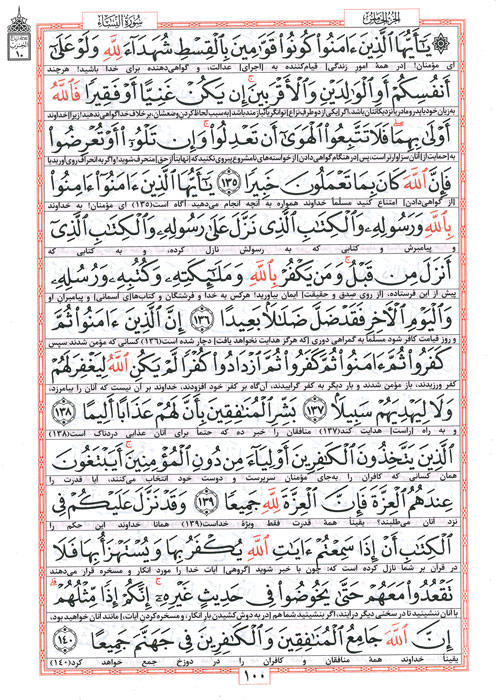 الجزء الخامس
سورة النساء
۱۰
يَٰٓأَيُّهَا ٱلَّذِينَ ءَامَنُوا۟ كُونُوا۟ قَوَّٰمِينَ بِٱلْقِسْطِ شُهَدَآءَ لِلَّهِ وَلَوْ عَلَىٰٓ
ای مؤمنان! [در همۀ امور زندگی] قیام‌کننده به [اجرای] عدالت، و گواهی‌دهنده برای خدا باشید! هرچند
أَنفُسِكُمْ أَوِ ٱلْوَٰلِدَيْنِ وَٱلْأَقْرَبِينَ إِن يَكُنْ غَنِيًّا أَوْ فَقِيرًا فَٱللَّهُ
به زیان خود یا پدر و مادر یا نزدیکانتان باشد؛ اگر [یکی از دو طرف نزاع] توانگر یا نیازمند باشد
أَوْلَىٰ بِهِمَا فَلَا تَتَّبِعُوا۟ ٱلْهَوَىٰٓ أَن تَعْدِلُوا۟ وَإِن تَلْوُۥٓا۟ أَوْ تُعْرِضُوا۟
به حمایت از آنان سزاوارتر است، پس [در هنگام گواهی دادن] از خواسته‌های نامشروع پیروی نکنید که
فَإِنَّ ٱللَّهَ كَانَ بِمَا تَعْمَلُونَ خَبِيرًا ۝١٣٥ يَٰٓأَيُّهَا ٱلَّذِينَ ءَامَنُوٓا۟ ءَامِنُوا۟
[از گواهی دادن] امتناع کنید مسلّماً خداوند همواره به آنچه انجام می‌دهید آگاه است(۱۳۵) ای مؤمنان! به خداوند
بِٱللَّهِ وَرَسُولِهِۦ وَٱلْكِتَٰبِ ٱلَّذِى نَزَّلَ عَلَىٰ رَسُولِهِۦ وَٱلْكِتَٰبِ ٱلَّذِىٓ
و پیامبرش و کتابی که به رسولش نازل کرده، و به کتابی که
أَنزَلَ مِن قَبْلُ وَمَن يَكْفُرْ بِٱللَّهِ وَمَلَٰٓئِكَتِهِۦ وَكُتُبِهِۦ وَرُسُلِهِۦ
پیش از این فرستاده، [از روی صدق و حقیقت] ایمان بیاورید! هرکس به خدا و فرشتگان و کتاب‌ها[ی آسمانی] و پیامبران او
وَٱلْيَوْمِ ٱلْءَاخِرِ فَقَدْ ضَلَّ ضَلَٰلًۢا بَعِيدًا ۝١٣٦ إِنَّ ٱلَّذِينَ ءَامَنُوا۟ ثُمَّ
و روز قیامت کافر شود مسلّماً به گمراهی دوری [که هرگز هدایت نخواهد یافت] دچار شده است(۱۳۶) کسانی که مؤمن شدند سپس
كَفَرُوا۟ ثُمَّ ءَامَنُوا۟ ثُمَّ كَفَرُوا۟ ثُمَّ ٱزْدَادُوا۟ كُفْرًا لَّمْ يَكُنِ ٱللَّهُ لِيَغْفِرَ لَهُمْ
کفر ورزیدند، باز مؤمن شدند و بار دیگر به کفر گراییدند، آن‌گاه بر کفر خود افزودند، خداوند بر آن نیست که آنان را بیامرزد،
وَلَا لِيَهْدِيَهُمْ سَبِيلًۢا ۝١٣٧ بَشِّرِ ٱلْمُنَٰفِقِينَ بِأَنَّ لَهُمْ عَذَابًا أَلِيمًا ۝١٣٨
و به راه [راست] هدایت کند(۱۳۷) منافقان را خبر ده که حتماً برای آنان عذابی دردناک است(۱۳۸)
ٱلَّذِينَ يَتَّخِذُونَ ٱلْكَٰفِرِينَ أَوْلِيَآءَ مِن دُونِ ٱلْمُؤْمِنِينَ أَيَبْتَغُونَ
همان کسانی که کافران را به‌جای مؤمنان سرپرست و دوست خود انتخاب می‌کنند، آیا قدرت را
عِندَهُمُ ٱلْعِزَّةَ فَإِنَّ ٱلْعِزَّةَ لِلَّهِ جَمِيعًا ۝١٣٩ وَقَدْ نَزَّلَ عَلَيْكُمْ فِى
نزد آنان می‌طلبند؟ یقیناً همۀ قدرت فقط ویژۀ خداست(۱۳۹) همانا خداوند این حکم را
ٱلْكِتَٰبِ أَنْ إِذَا سَمِعْتُمْ ءَايَٰتِ ٱللَّهِ يُكْفَرُ بِهَا وَيُسْتَهْزَأُ بِهَا فَلَا
در قرآن بر شما نازل کرده است که: چون با خبر شوید [گروهی] آیات خدا را مورد انکار و مسخره قرار می‌دهند
تَقْعُدُوا۟ مَعَهُمْ حَتَّىٰ يَخُوضُوا۟ فِى حَدِيثٍ غَيْرِهِۦٓ إِنَّكُمْ إِذًا مِّثْلُهُمْ
با آنان ننشینید تا در سخنی دیگر درآیند، اگر بنشینید شما هم [در به دوش کشیدن بار انکار، و مسخره کردن آیات،] مانند آنان خواهید بود،
إِنَّ ٱللَّهَ جَامِعُ ٱلْمُنَٰفِقِينَ وَٱلْكَٰفِرِينَ فِى جَهَنَّمَ جَمِيعًا ۝١٤٠
یقیناً خداوند همۀ منافقان و کافران را در دوزخ جمع خواهد کرد(۱۴۰)
۱۰۰